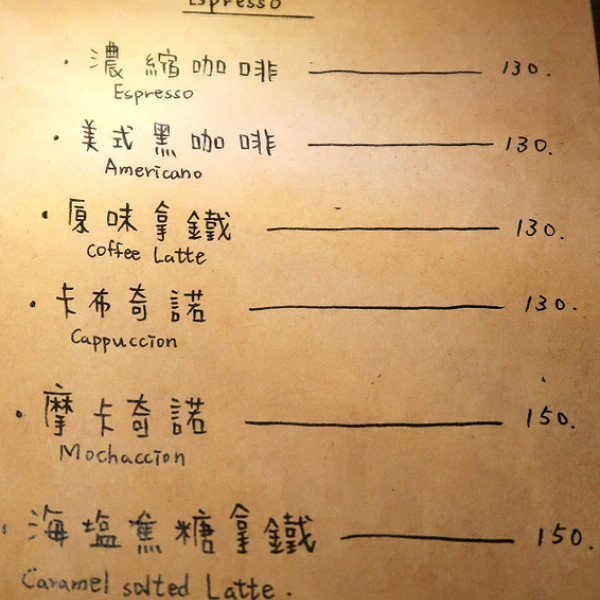 Espresso
· 濃縮咖啡 130.
Espresso
· 美式黑咖啡 130.
Americano
· 原味拿鐵 130.
Coffee Latte
· 卡布奇諾 130.
Cappuccion
· 摩卡奇諾 150.
Mochaccion
· 海塩焦糖拿鐵 150.
Caramel salted Latte.